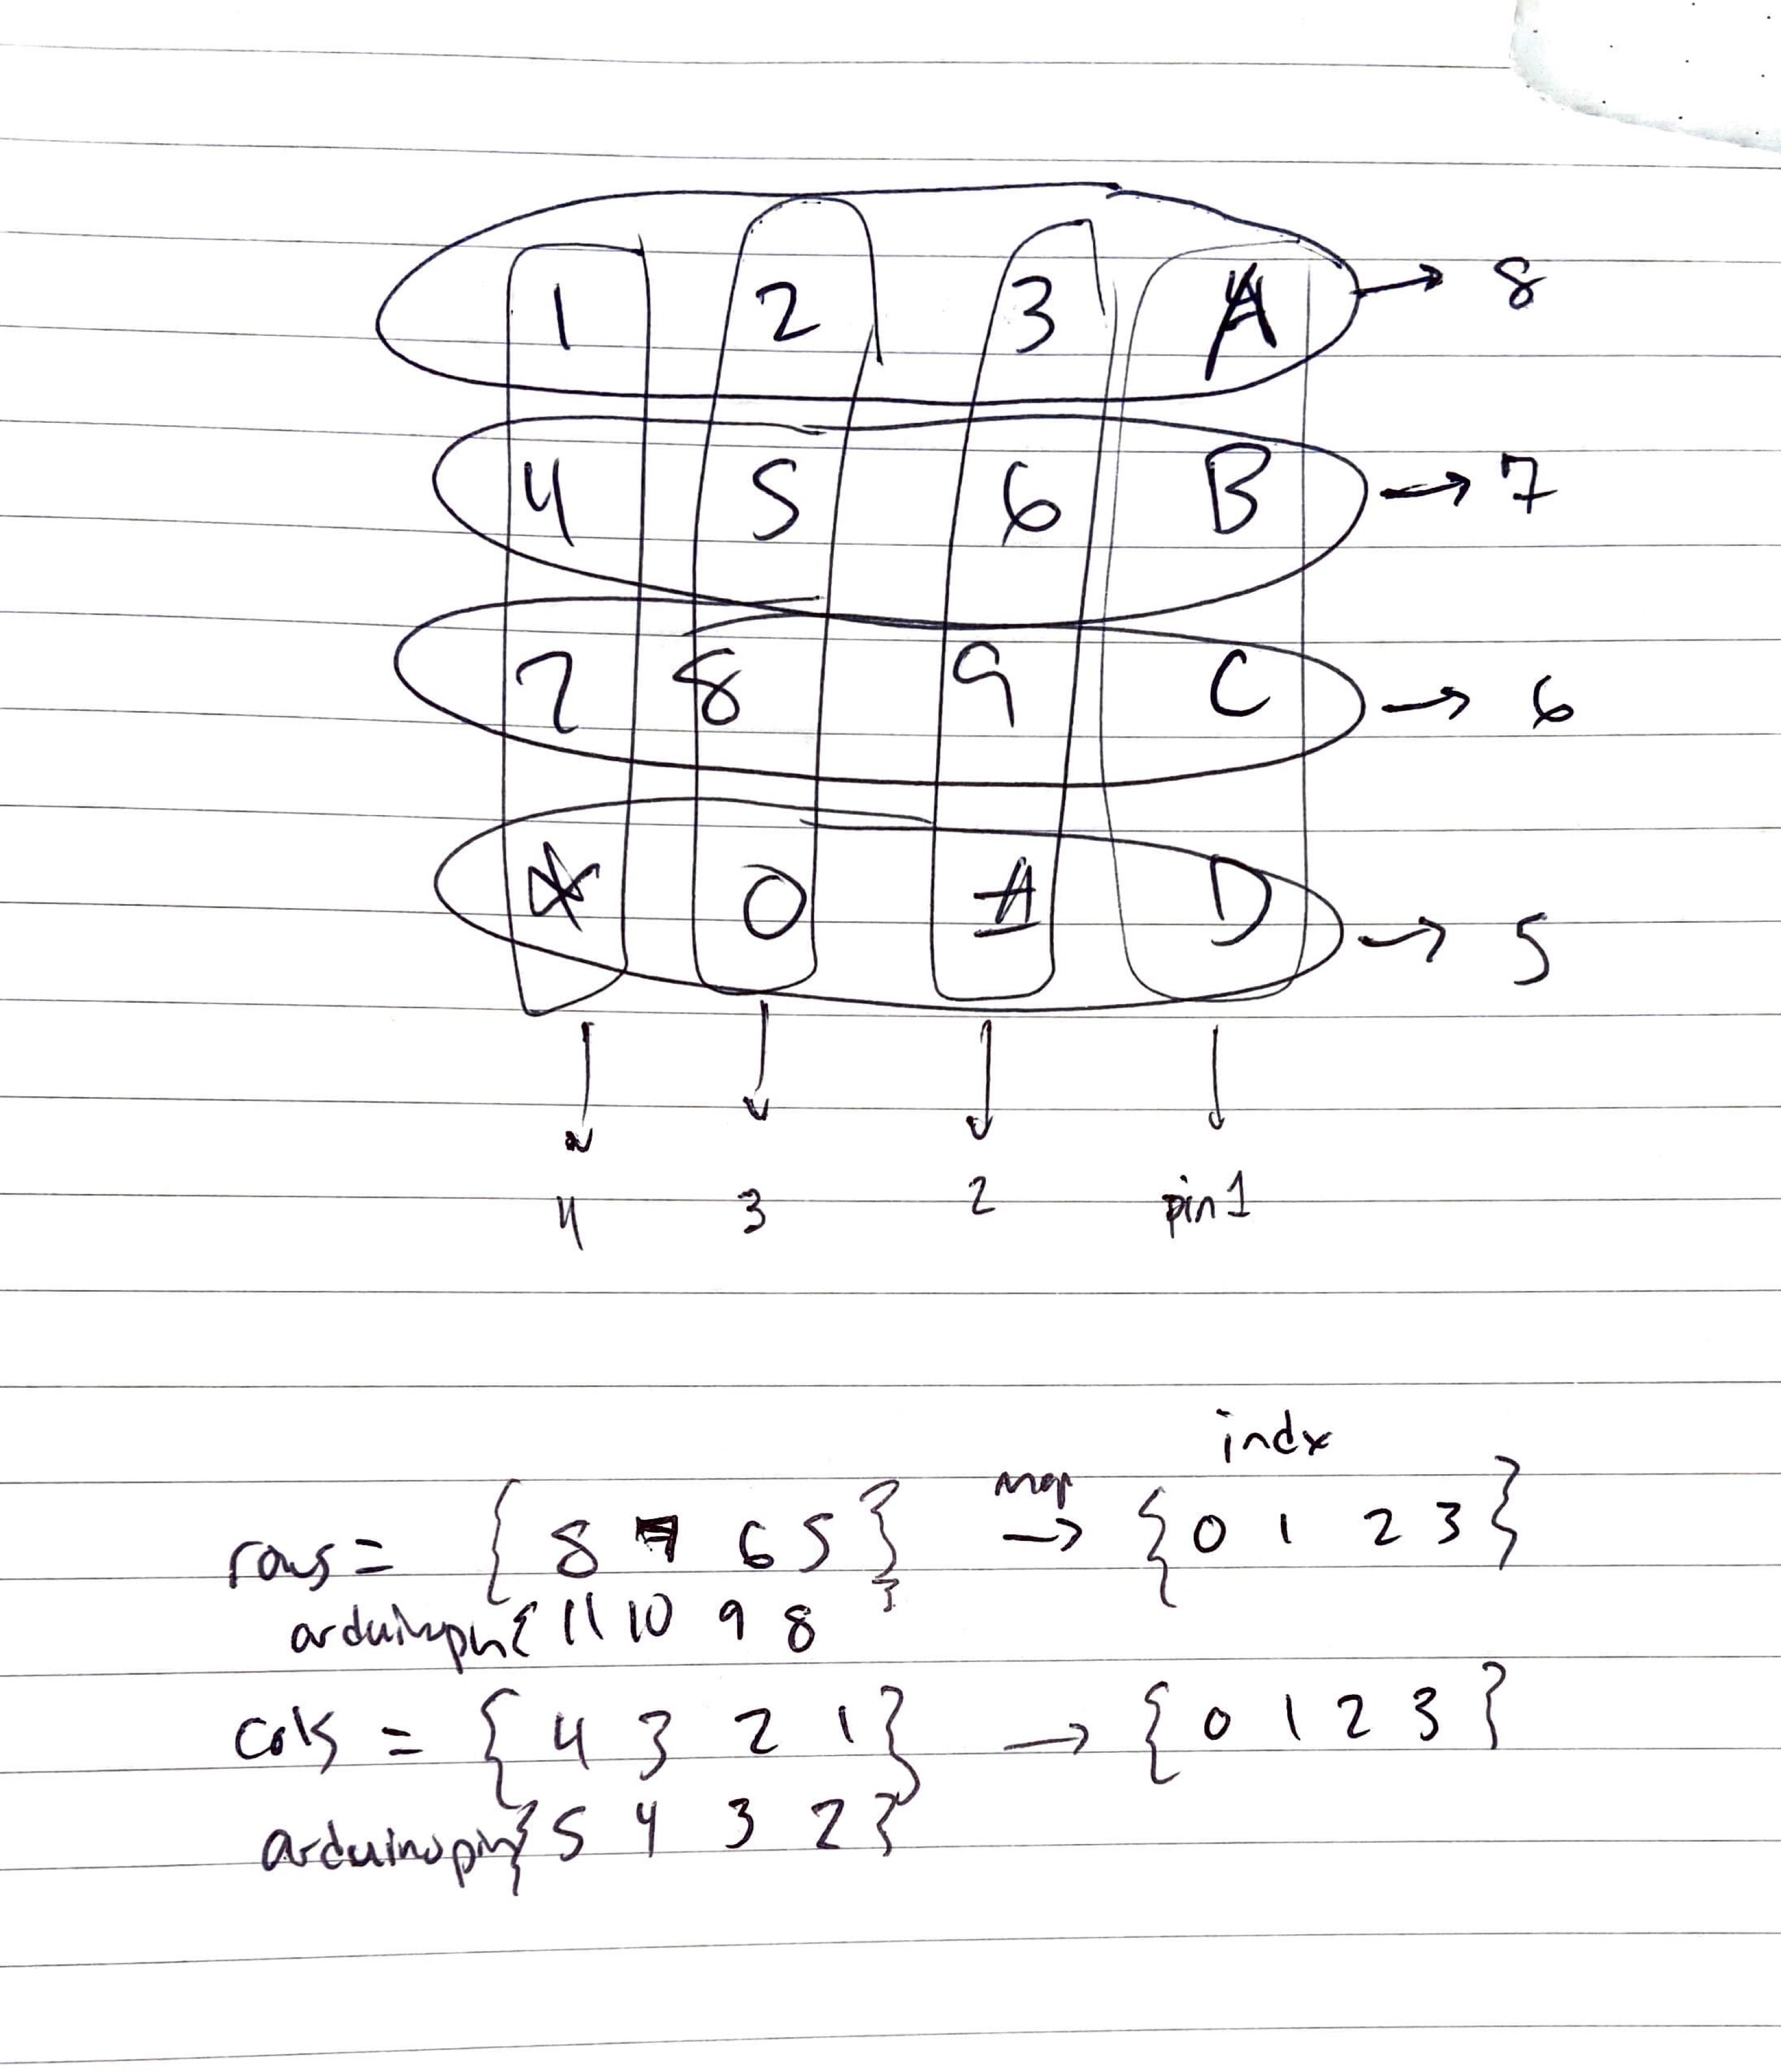 1 2 3 A → 8
4 5 6 B → 7
7 8 9 C → 6
* 0 # D → 5
4 3 2 pin 1
indx
rows = { 8 7 6 5 } map → { 0 1 2 3 }
arduinopin { 11 10 9 8 }
cols = { 4 3 2 1 } → { 0 1 2 3 }
arduinopin { 5 4 3 2 }